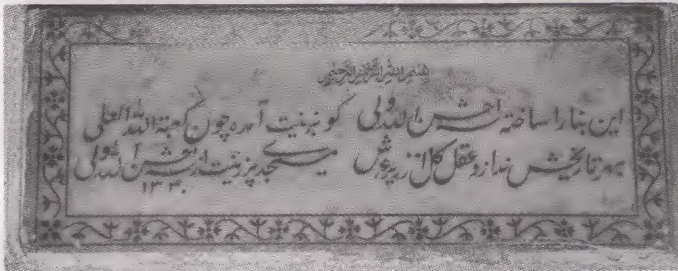 بسم الله الرحمن الرحیم
این بنا را ساخته احسن الله ولی کو بزینت آمده چون کعبة الله العلی
بهر تاریخش ندا زد عقل کل از زیر عرش مسجد پر زینت از احسن الله ولی
۱۳۴۰